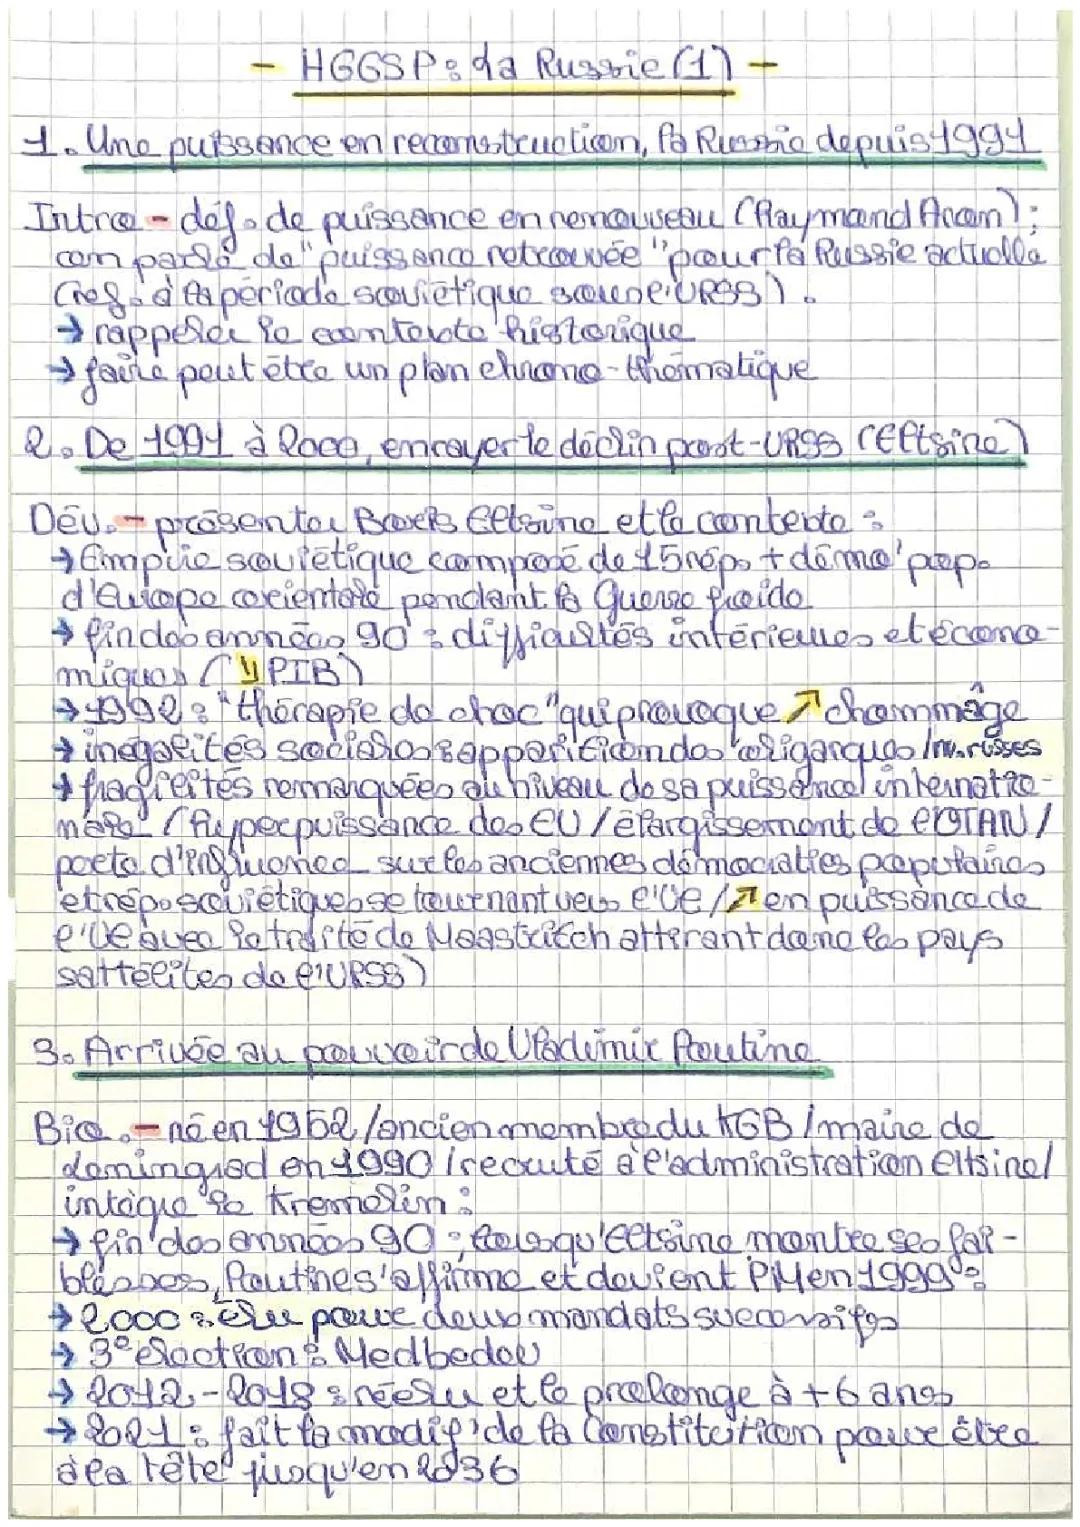 - HGGSP : La Russie (1) -
1. Une puissance en reconstruction, la Russie depuis 1991
Intro - déf. de puissance en renouveau (Raymond Aron) ;
on parle de "puissance retrouvée" pour la Russie actuelle
(ref. à la période soviétique sous l'URSS).
→ rappeler le contexte historique
→ faire peut être un plan chrono-thématique
2. De 1991 à 2000, enrayer le déclin post-URSS (Eltsine)
Dév. - présenter Boris Eltsine et le contexte :
→ Empire soviétique composé de 15 rép. + démo' pop.
d'Europe orientale pendant la Guerre froide
→ fin des années 90 : difficultés intérieures et écono-
miques (↘ PIB)
→ 1992 : "thérapie de choc" qui provoque ↗ chommâge
→ inégalités sociales : apparition des oligarques / nv. russes
→ fragilités remarquées au niveau de sa puissance internatio-
nale (hyperpuissance des EU / élargissement de l'OTAN /
perte d'influence sur les anciennes démocraties populaires
et rép. soviétiques se tournant vers l'UE / ↗ en puissance de
l'UE avec le traité de Maastritch attirant dans les pays
sattélites de l'URSS)
3. Arrivée au pouvoir de Vladimir Poutine
Bio. - né en 1952 / ancien membre du KGB / maire de
Leningrad en 1990 / recruté à l'administration Eltsine /
intègre le Kremelin :
→ fin des années 90 : lorsqu'Eltsine montre ses fai-
blesses, Poutine s'affirme et devient PM en 1999 :
→ 2000 : élu pour deux mandats successifs
→ 3° élection : Medbedov
→ 2012 - 2018 : réélu et le prolonge à + 6 ans
→ 2021 : fait la modif' de la Constitution pour être
à la tête jusqu'en 2036